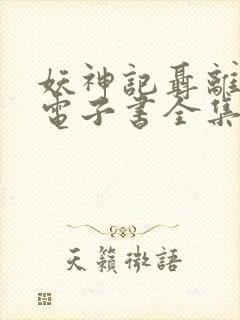 妖神記聶離
電子書全集
天籟微語